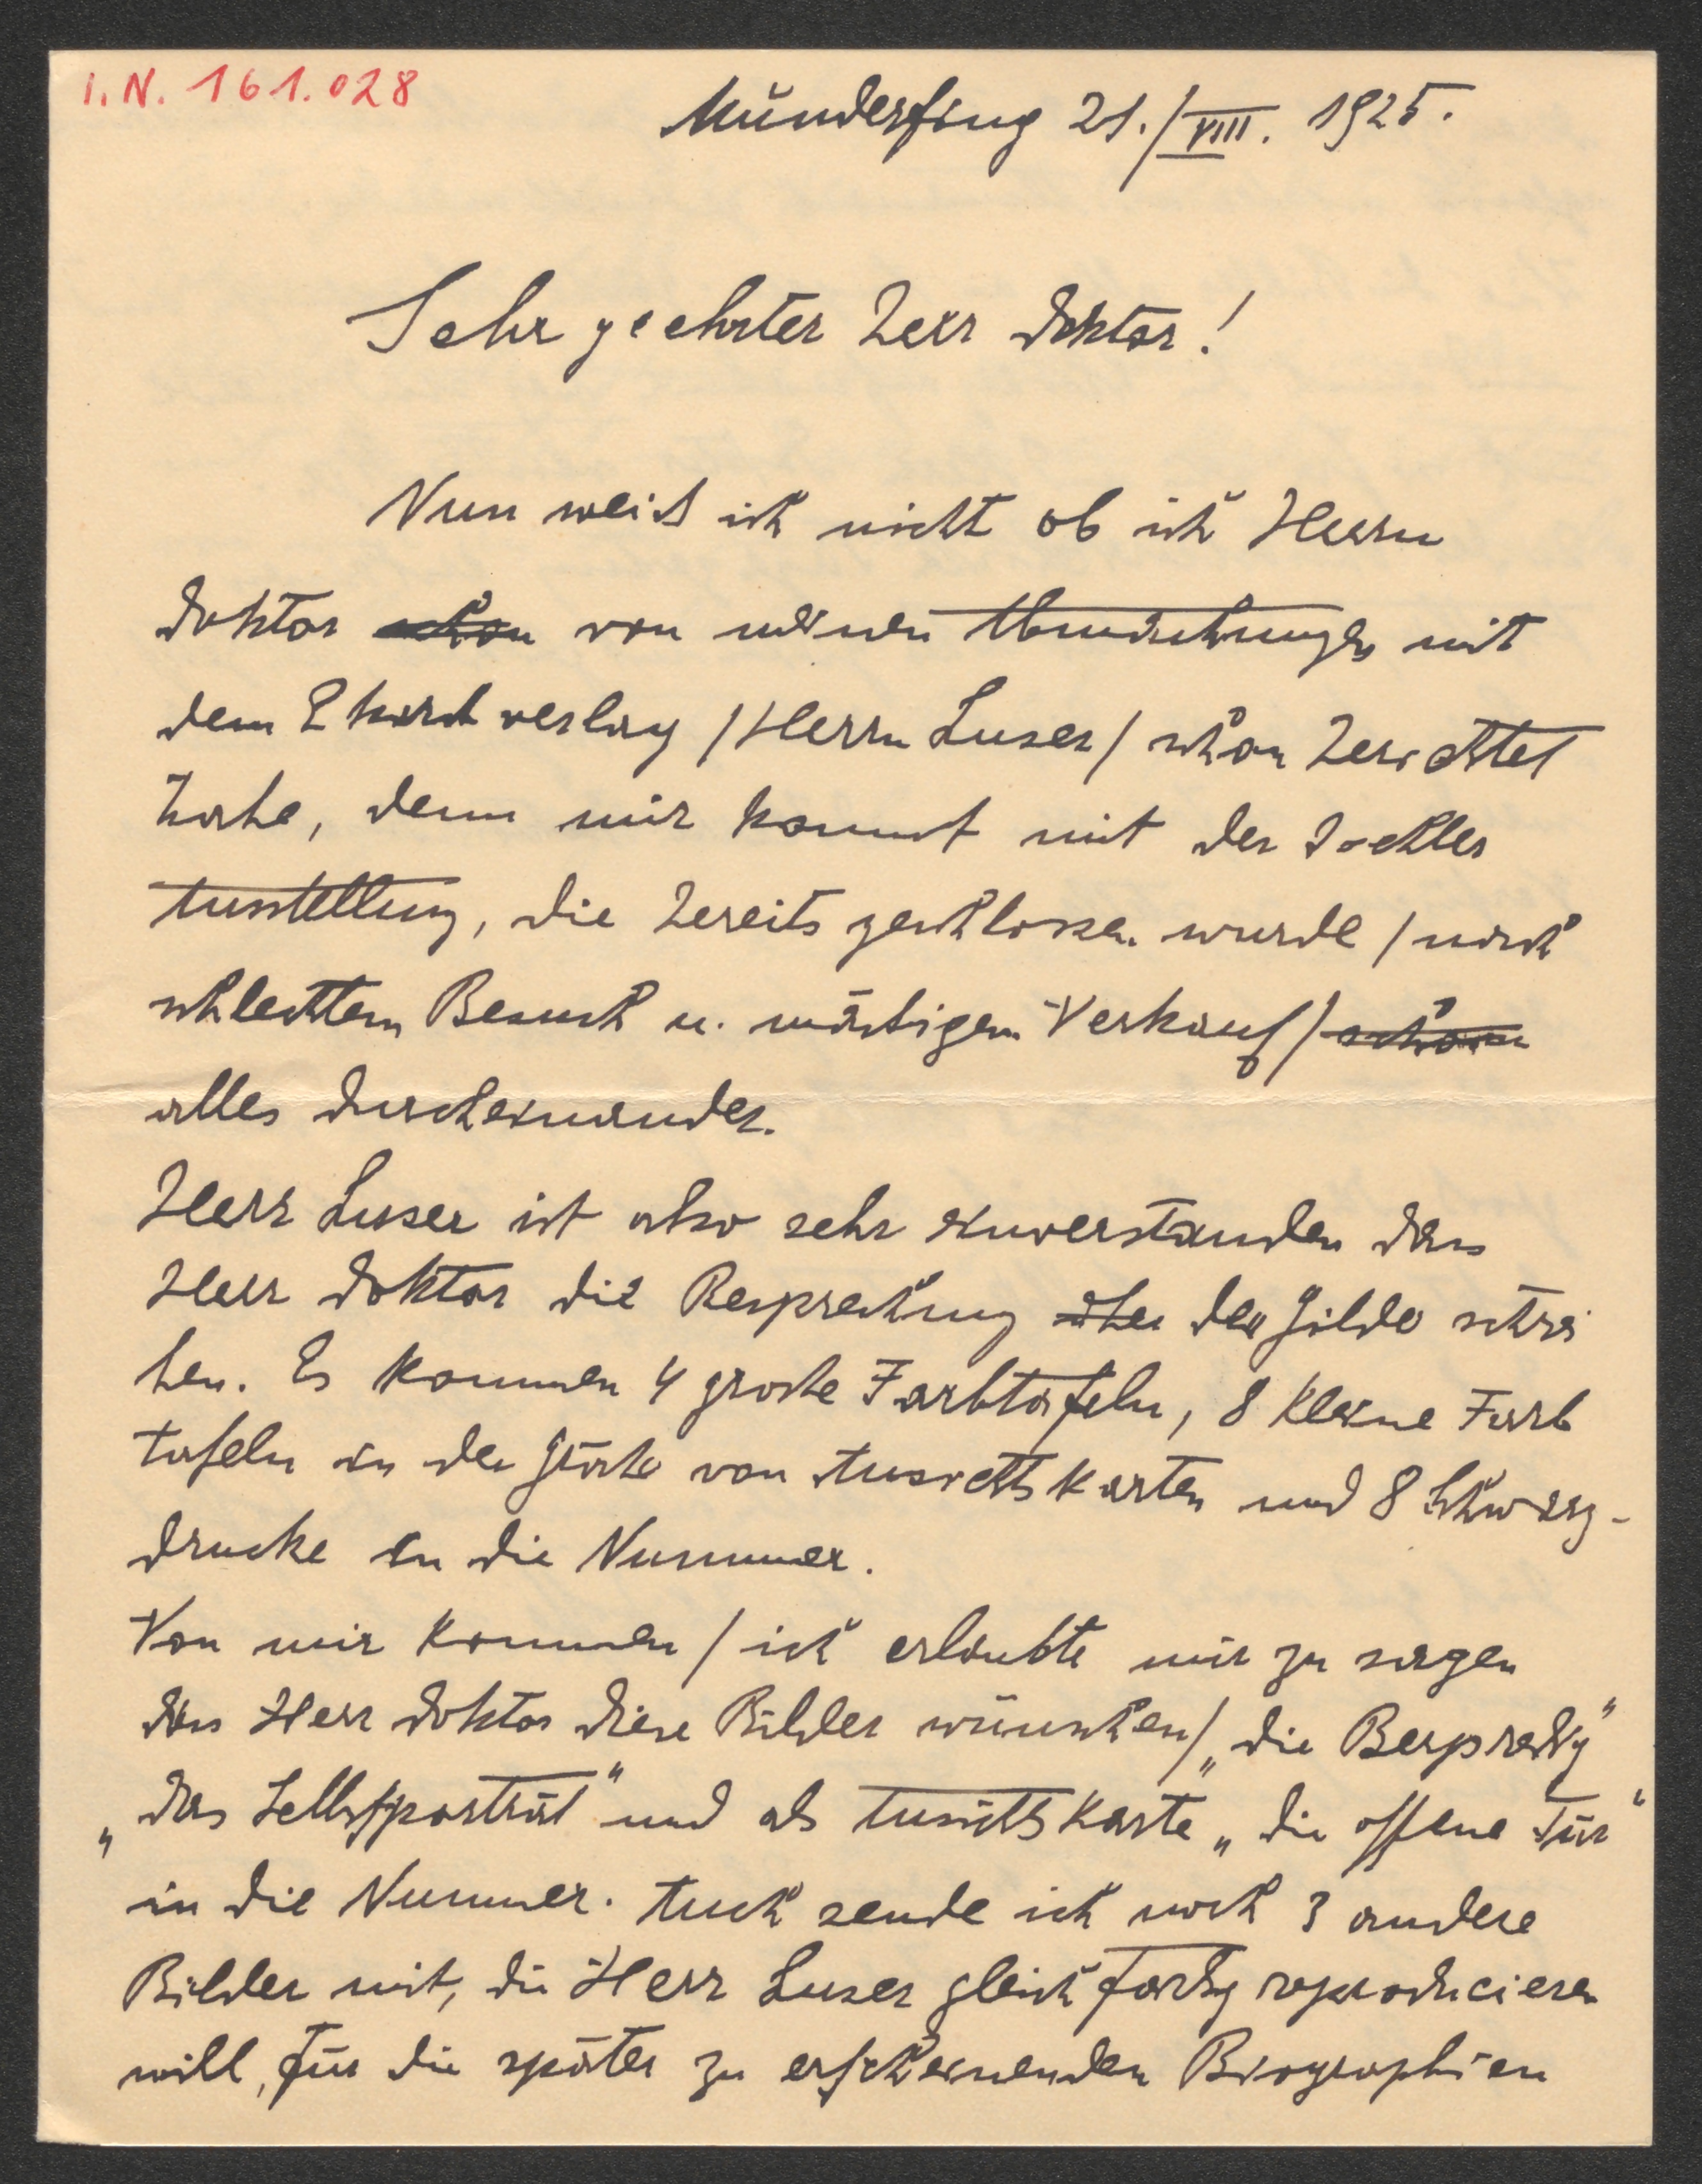 I. N. 161.028
Munderfing 21./VIII. 1925.
Sehr geehrter Herr Doktor!
Nun weiß ich nicht ob ich Herrn
Doktor schon von meinen Abmachungen mit
dem Ekartverlag /Herrn Luser/ schon berichtet
habe, denn mir kommt mit der
Ausstellung, die bereits geschlossen wurde / nach
schlechtem Besuch u. mäßigem Verkauf/ schon
alles durcheinander.
Herr Luser ist also sehr einverstanden dass
Herr Doktor die Besprechung über der Gilde schrei
ben. Es kommen 4 große Farbtafeln, 8 kleine Farb
tafeln in der Größe von Ansichtskarten und 8 Schwarz-
drucke in die Nummer.
Von mir kommen / ich erlaubte mir zu sagen
dass Herr Doktor diese Bilder wünschen/ „die Besprechg"
„das Selbstporträt" und als Ansichtskarte „die offene Tür"
in die Nummer. Auch sende ich noch 3 andere
Bilder mit, die Herr Luser gleich farbig reproducieren
will, für die später zu erscheinenden Biographien